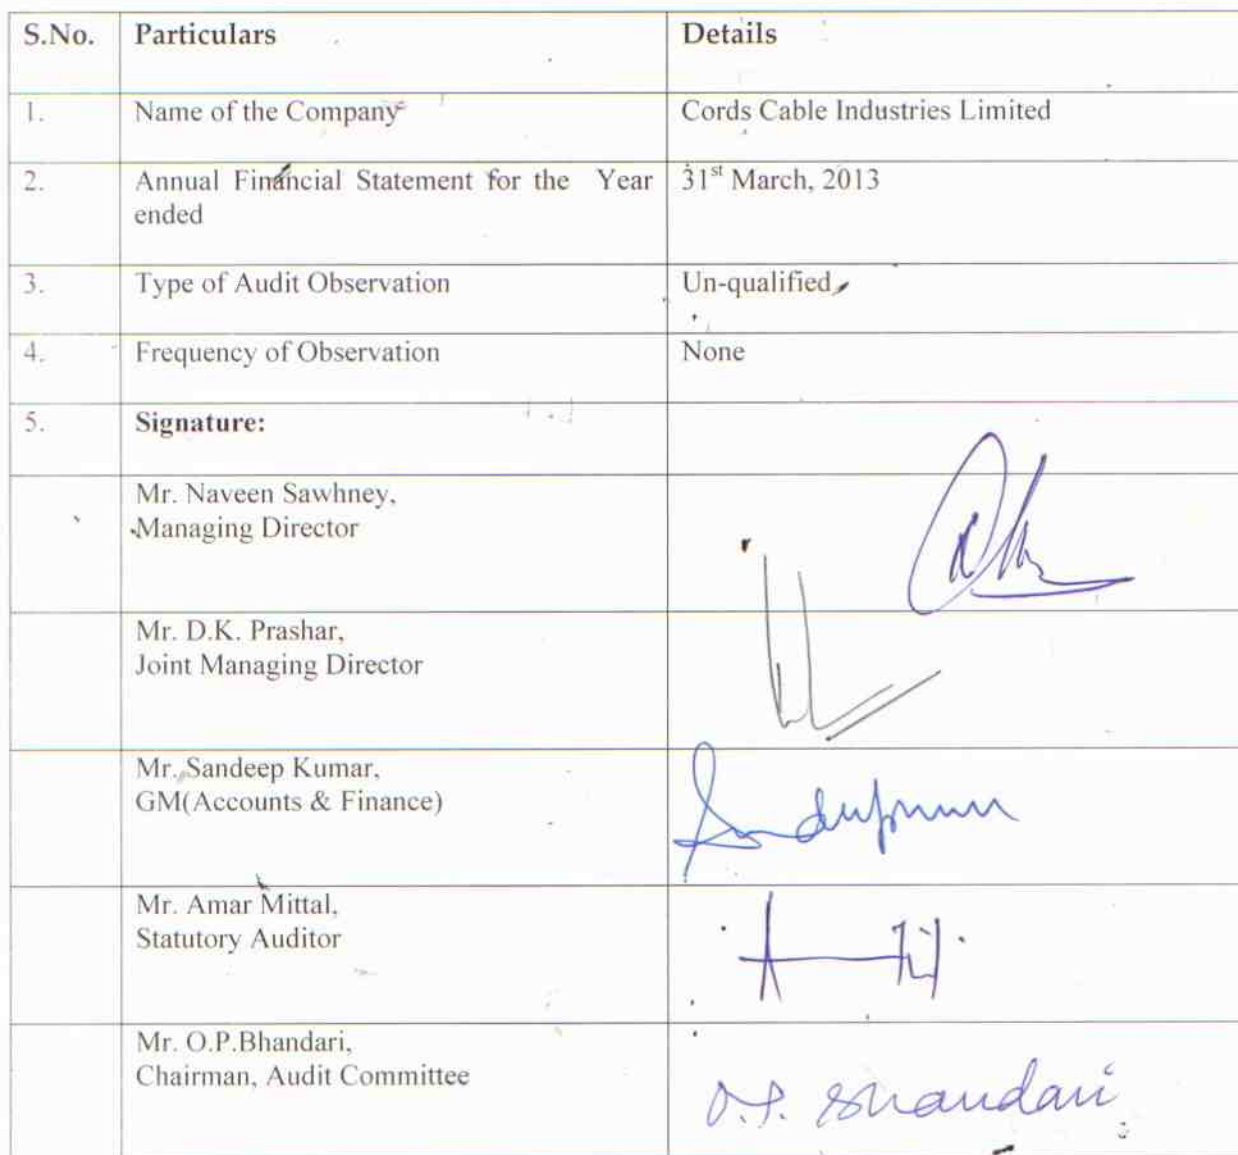 S.No. Particulars Details
1. Name of the Company Cords Cable Industries Limited
2. Annual Financial Statement for the Year 31st March, 2013
ended
3. Type of Audit Observation Un-qualified
4. Frequency of Observation None
5. Signature:
Mr. Naveen Sawhney,
Managing Director
Mr. D.K. Prashar,
Joint Managing Director
Mr. Sandeep Kumar,
GM(Accounts & Finance)
Mr. Amar Mittal,
Statutory Auditor
Mr. O.P.Bhandari,
Chairman, Audit Committee
O.P. Bhandari